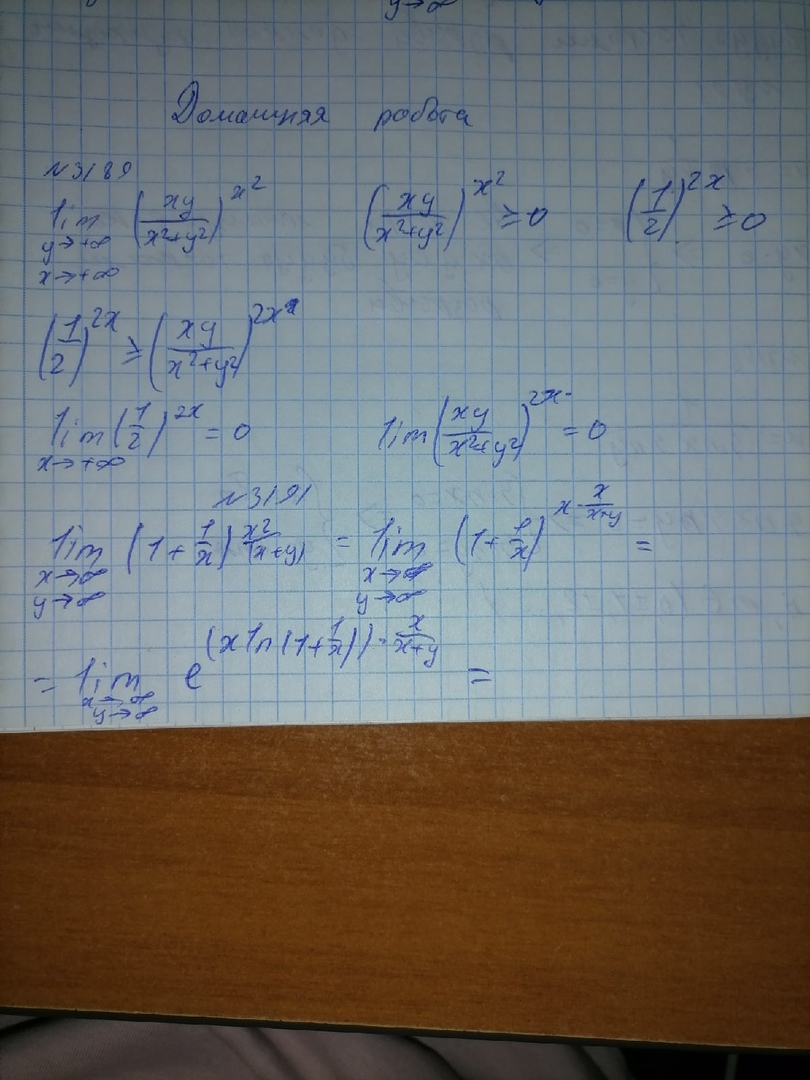 y→∞
Домашняя работа
№3189
lim y→+∞ x→+∞ (xy/(x²+y²))^x² (xy/(x²+y²))^x² ≥ 0 (1/2)^2x ≥ 0
(1/2)^2x ≥ (xy/(x²+y²))^2x
lim x→+∞ (1/2)^2x = 0 lim (xy/(x²+y²))^2x = 0
№3191
lim x→∞ y→∞ (1+1/x)^(x²/(x+y)) = lim x→∞ y→∞ (1+1/x)^(x·x/(x+y)) =
= lim x→∞ y→∞ e^((x ln(1+1/x))·x/(x+y)) =